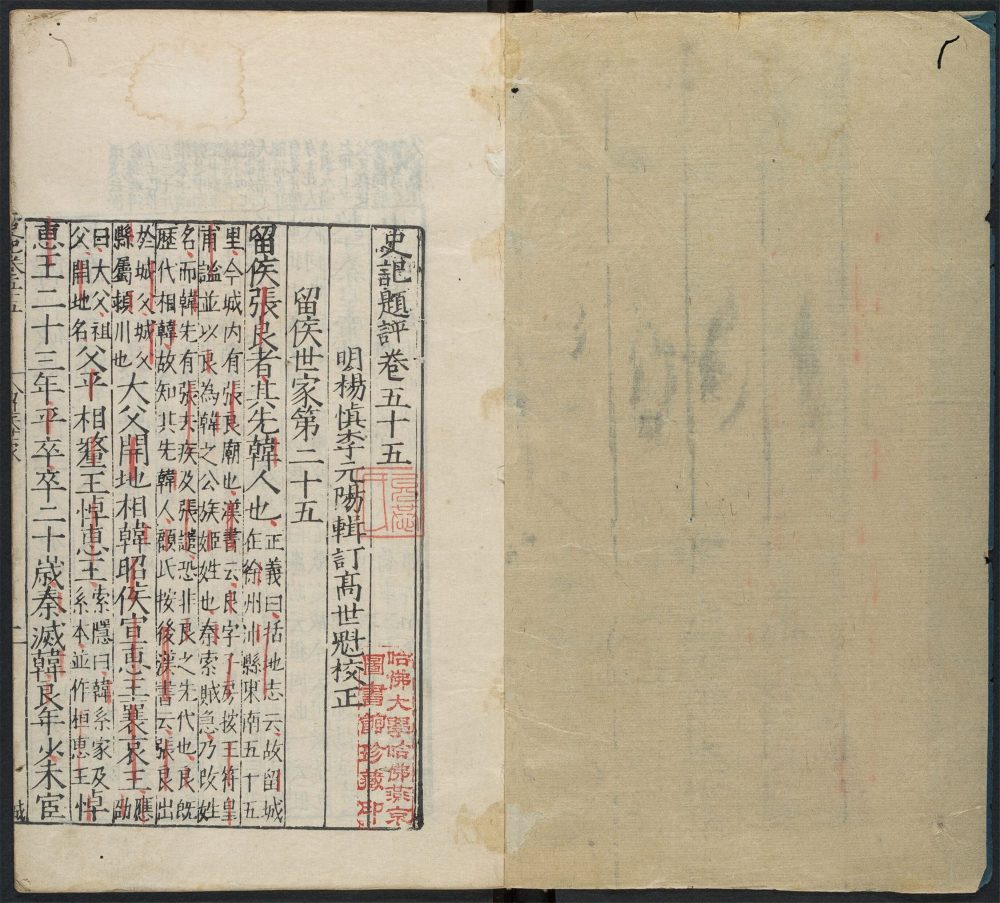 史記題評卷五十五
明楊慎李元陽輯訂髙世魁校正
留侯世家第二十五
留侯張良者其先韓人也正義曰括地志云故留城在徐州沛縣東南五十五
里今城内有張良廟也漢書云良字子房按王符皇
甫謐並以良為韓之公族姬姓也秦索賊急乃改姓
名而韓先有張去疾及張譴恐非良之先代也良既
歴代相韓故知其先韓人顧氏按後漢書云張良出
於城父城父縣屬頴川也大父開地相韓昭侯宣惠王襄哀王應劭
曰大父祖父開地名父平相釐王悼惠王索隱曰韓系家及系本並作桓惠王悼
惠王二十三年平卒卒二十歲秦滅韓良年少未宦
哈佛大學哈佛燕京
圖書館珍藏印